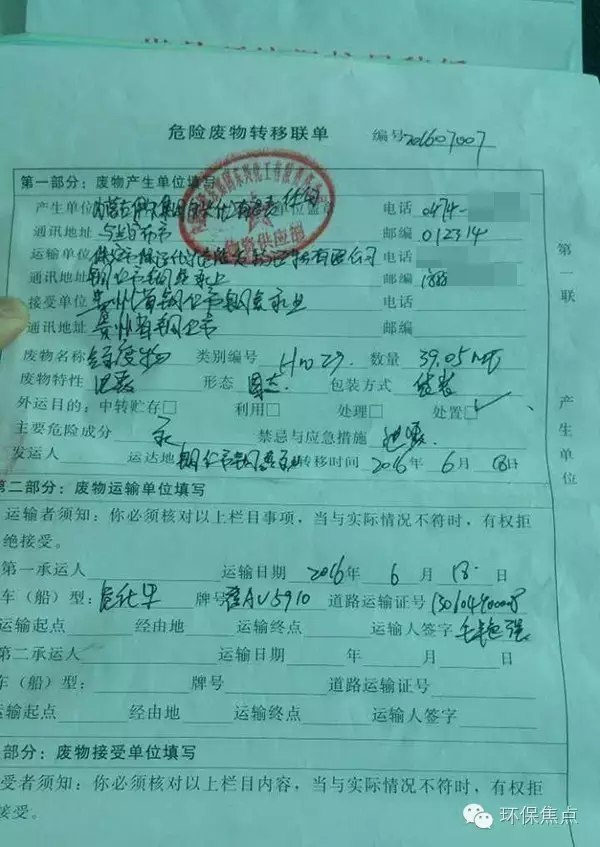 危险废物转移联单 编号201607007
第一部分：废物产生单位填写
产生单位 单位盖章 电话 0474-
物资供应部
通讯地址 乌兰察布市 邮编 012314
运输单位 运输有限公司 电话
通讯地址 邮编
接受单位 贵州省铜仁市铜鑫汞业 电话
通讯地址 贵州省铜仁市 邮编
废物名称 含汞废物 类别编号 HW29 数量 39.05
废物特性 形态 固态 包装方式 袋装
外运目的：中转贮存□ 利用□ 处理□ 处置☑
主要危险成分 汞 禁忌与应急措施 泄露
发运人 运达地 铜仁市铜鑫汞业 转移时间 2016年 6月 18日
第一联 产生单位
第二部分：废物运输单位填写
运输者须知：你必须核对以上栏目事项，当与实际情况不符时，有权拒
绝接受。
第一承运人 运输日期 2016年 6月 18日
车（船）型： 牌号 AU5910 道路运输证号
运输起点 经由地 运输终点 运输人签字
第二承运人 运输日期 年 月 日
车（船）型： 牌号 道路运输证号
运输起点 经由地 运输终点 运输人签字
部分：废物接受单位填写
受者须知：你必须核对以上栏目内容，当与实际情况不符时，有权拒
接受。
环保焦点